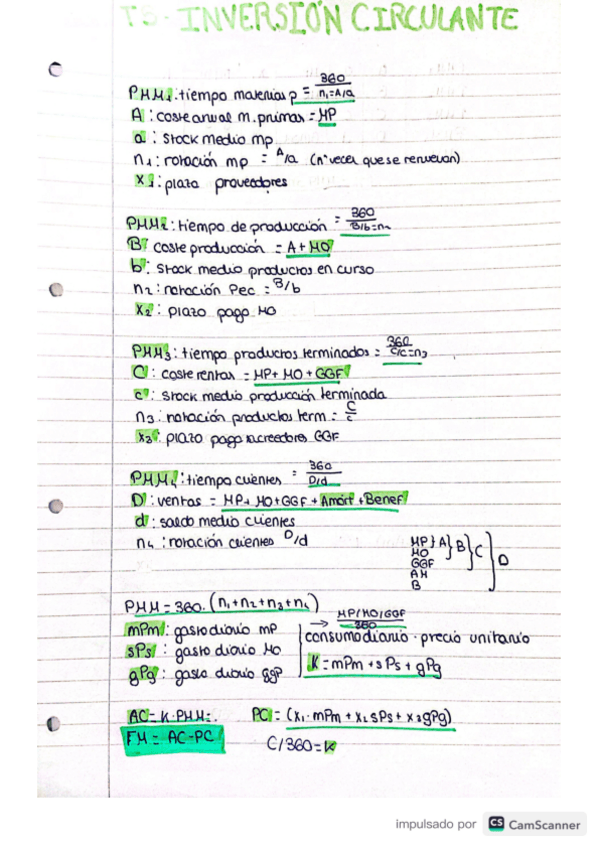 T5 - INVERSIÓN CIRCULANTE
PMM1: tiempo materias p = 360 / n1=A/a
A : coste anual m. primas = MP
a : stock medio mp
n1: rotación mp = A/a (nº veces que se renuevan)
x1: plazo proveedores
PMM2: tiempo de producción = 360 / B/b=n2
B: coste producción = A + MO
b: stock medio productos en curso
n2: rotación Pec = B/b
x2: plazo pago MO
PMM3: tiempo productos terminados = 360 / C/c=n3
C: coste ventas = MP + MO + GGF
c: stock medio producción terminada
n3: rotación productos term = C/c
x3: plazo pago acreedores GGF
PMM4: tiempo clientes = 360 / D/d
D: ventas = MP + MO + GGF + Amort + Benef
d: saldo medio clientes
n4: rotación clientes D/d
MP } A } B } C } D
MO
GGF
AM
B
PMM = 360 · (n1+n2+n3+n4)
mPm: gasto diario MP
sPs: gasto diario MO
gPg: gasto diario ggf
→ MP/MO/GGF / 360
consumo diario · precio unitario
K = mPm + sPs + gPg
AC = K · PMM =.
PC = (x1 · mPm + x2 sPs + x3 gPg)
FM = AC - PC
C/360 = K
impulsado por CS CamScanner